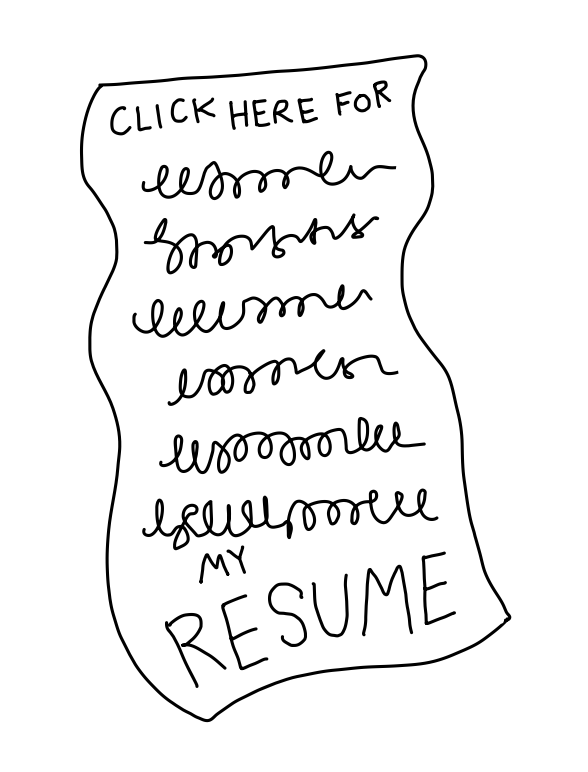 CLICK HERE FOR
MY
RESUME